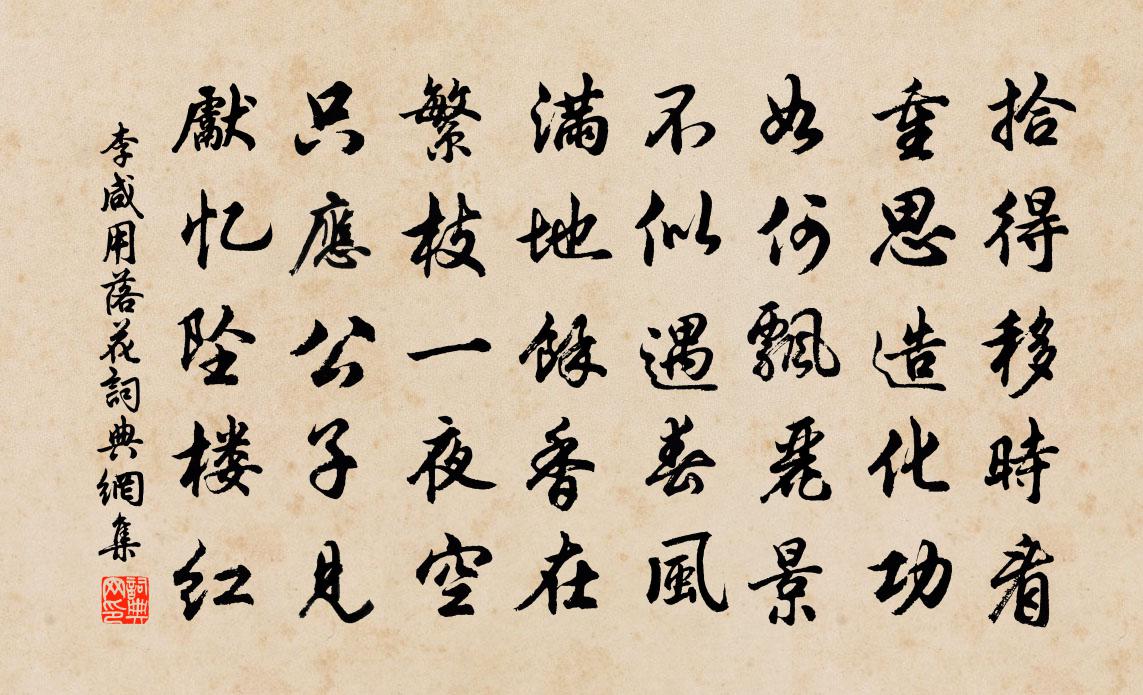 拾得移時看
重思造化功
如何飄麗景
不似遇春風
滿地餘香在
繁枝一夜空
只應公子見
獻忆坠楼红
李咸用落花詞典網集
詞典
网印